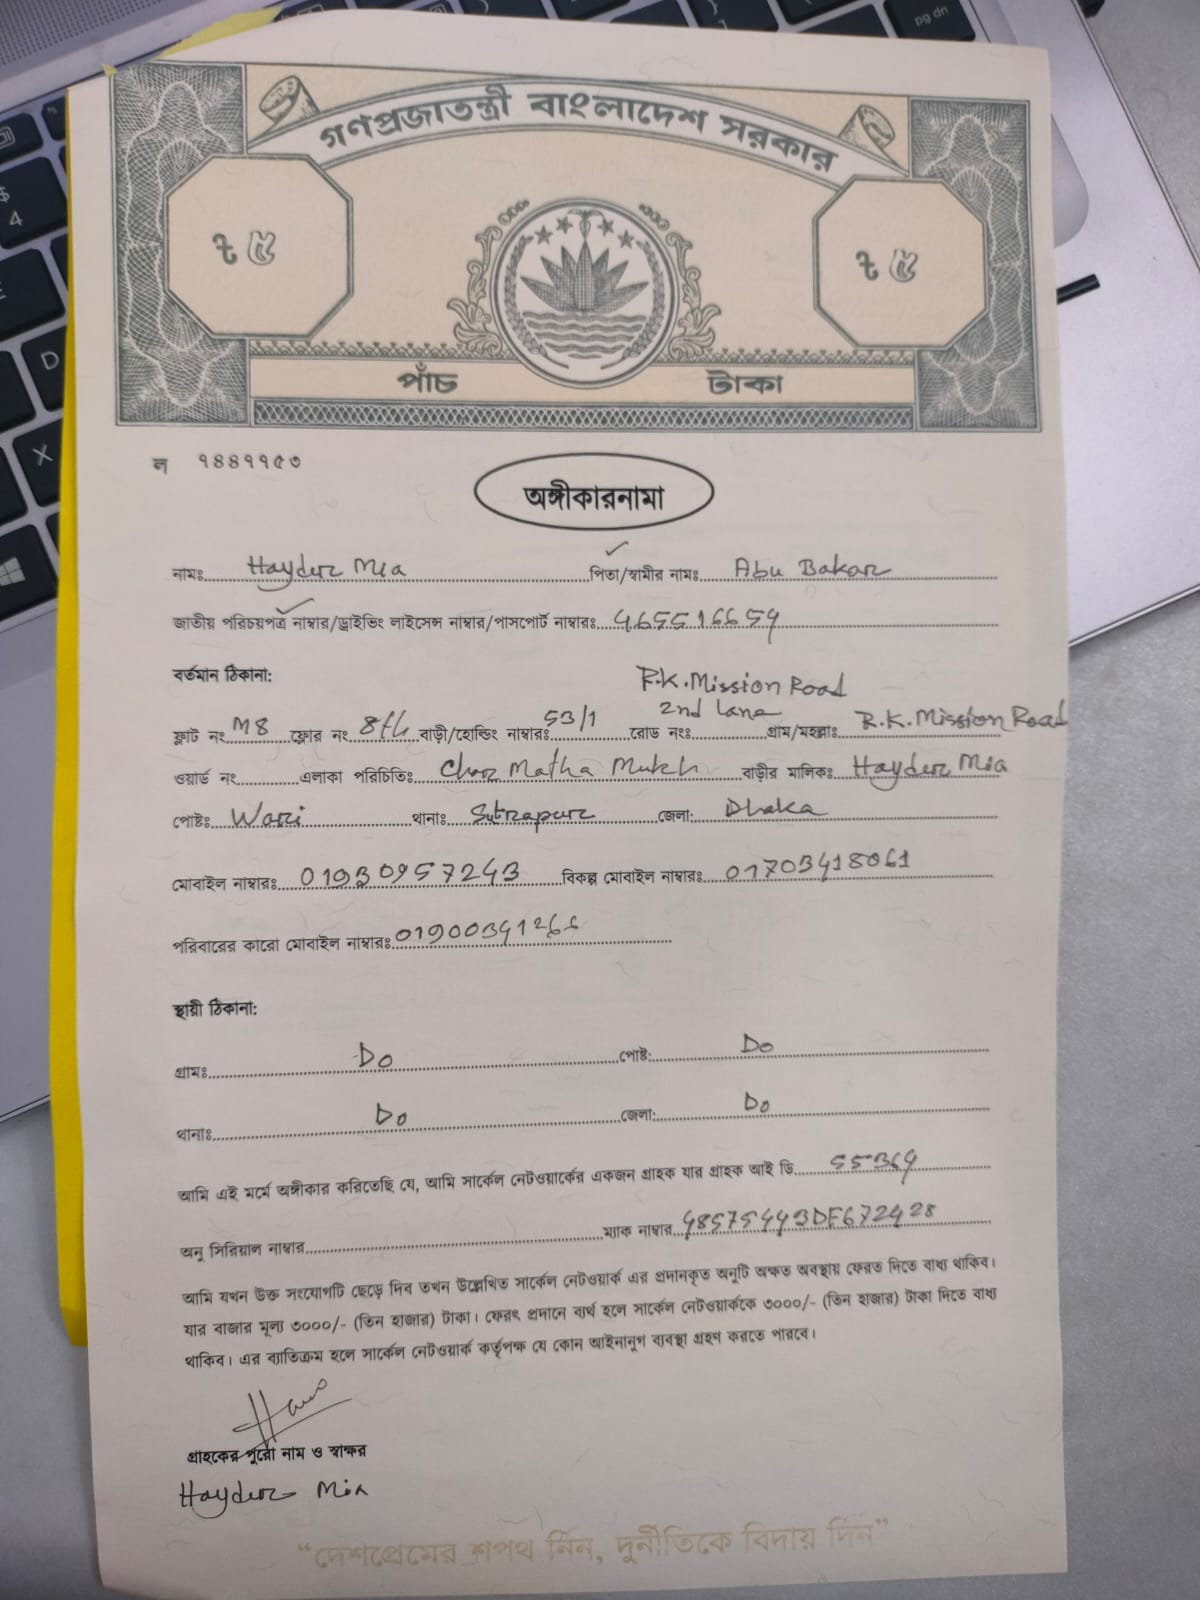 গণপ্রজাতন্ত্রী বাংলাদেশ সরকার
৳ ৫ ৳ ৫
পাঁচ টাকা
ল ৭৪৪৭৭৫৩
অঙ্গীকারনামা
নামঃ Hayder Mia পিতা/স্বামীর নাম: Abu Bakar
জাতীয় পরিচয়পত্র নাম্বার/ড্রাইভিং লাইসেন্স নাম্বার/পাসপোর্ট নাম্বারঃ
বর্তমান ঠিকানা:
R.K. Mission Road
ফ্লাট নং M8 ফ্লোর নং 8th বাড়ী/হোল্ডিং নাম্বারঃ 53/1 রোড নংঃ 2nd Lane গ্রাম/মহল্লাঃ R.K. Mission Road
ওয়ার্ড নং এলাকা পরিচিতিঃ Char Matha Mukh বাড়ীর মালিকঃ Hayder Mia
পোষ্টঃ Wari থানাঃ Sutrapur জেলা: Dhaka
মোবাইল নাম্বারঃ 01930957243 বিকল্প মোবাইল নাম্বারঃ 01703418061
পরিবারের কারো মোবাইল নাম্বারঃ
স্থায়ী ঠিকানা:
গ্রামঃ Do পোষ্ট: Do
থানাঃ Do জেলা: Do
আমি এই মর্মে অঙ্গীকার করিতেছি যে, আমি সার্কেল নেটওয়ার্কের একজন গ্রাহক যার গ্রাহক আই ডি
অনু সিরিয়াল নাম্বার ম্যাক নাম্বার
আমি যখন উক্ত সংযোগটি ছেড়ে দিব তখন উল্লেখিত সার্কেল নেটওয়ার্ক এর প্রদানকৃত অনুটি অক্ষত অবস্থায় ফেরত দিতে বাধ্য থাকিব।
যার বাজার মূল্য ৩০০০/- (তিন হাজার) টাকা। ফেরৎ প্রদানে ব্যর্থ হলে সার্কেল নেটওয়ার্ককে ৩০০০/- (তিন হাজার) টাকা দিতে বাধ্য
থাকিব। এর ব্যতিক্রম হলে সার্কেল নেটওয়ার্ক কর্তৃপক্ষ যে কোন আইনানুগ ব্যবস্থা গ্রহণ করতে পারবে।
গ্রাহকের পুরো নাম ও স্বাক্ষর
Hayder Mia
“দেশপ্রেমের শপথ নিন, দুর্নীতিকে বিদায় দিন”